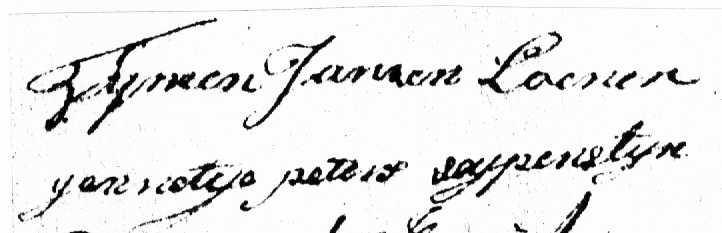 Tymen Jansen Loenen
yannetye peters seypenstyn